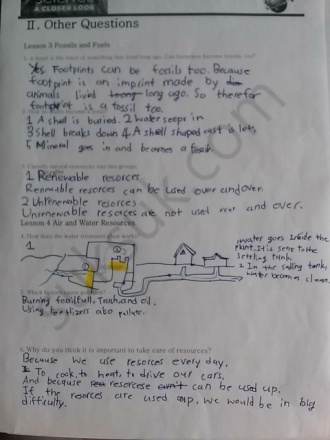 A CLOSER LOOK
II. Other Questions
Lesson 3 Fossils and Fuels
Yes. Footprints can be fosils too. Because
footprint is an imprint made by
animals lived long ago. So therfor
footprint is a fossil too.
1 A shell is buried. 2 Water seeps in
3 Shell breaks down 4 A shell shaped cast is left,
5 Mineral goes in and becomes a fossil.
1 Renewable resorces
Renewable resorces can be used over and over.
2 Unrenewable resorces
Unrenewable resorces are not used over and over.
Lesson 4 Air and Water Resources
4. How does the water treatment plant works?
1
water goes inside the
plant. It is sent to the
settling tank.
2 In the settling tank,
water becomes clean.
Burning fossil fuel, Trash and oil.
Using fertilizers also pollute.
6. Why do you think it is important to take care of resources?
Because we use resorces every day,
To cook, to heat, to drive our cars,
And because resoresce can be used up,
If the resorces are used up, we would be in big
difficulty.